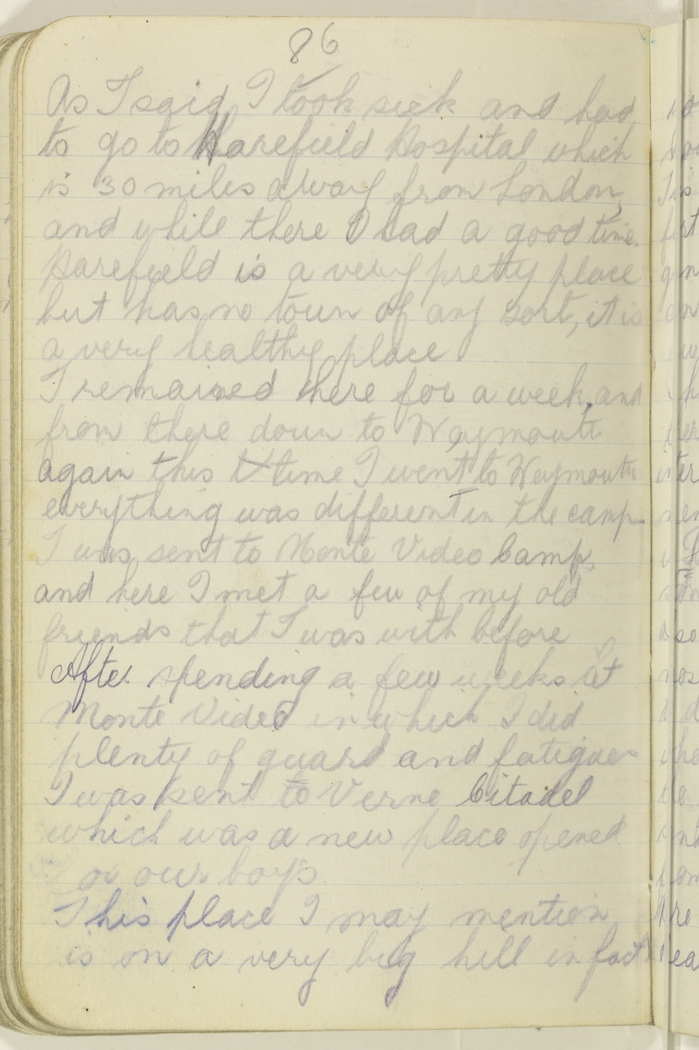 86
As I said I took sick and had
to go to Harefield Hospital which
is 30 miles away from London,
and while there I had a good time.
Harefield is a very pretty place
but has no town of any sort, it is
a very healthy place
I remained there for a week, and
from there down to Waymouth
again this time I went to Weymouth
everything was different in the camp.
I was sent to Monte Video Camp,
and here I met a few of my old
friends that I was with before
After spending a few weeks at
Monte Video in which I did
plenty of guard and fatigues
I was sent to Verne Citadel
which was a new place opened
for our boys.
This place I may mention
is on a very big hill in fact